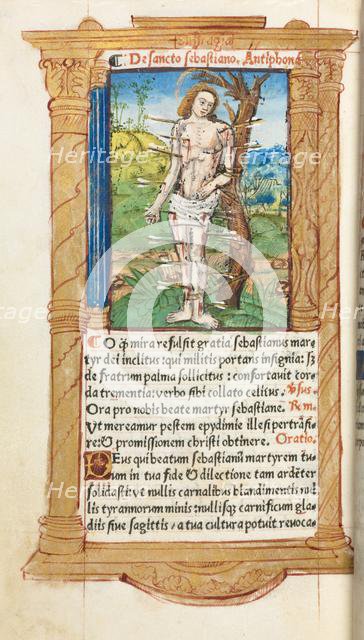 Suffragia
De sancto sebastiano, Antiphona
O q̄ mira refulsit gratia sebastianus mar-
tyr dei inclitus: qui militis portans insignia: sʒ
de fratrum palma sollicitus: confortauit cor-
da trementia: verbo sibi collato celitus. Ѷsus
Ora pro nobis beate martyr sebastiane. Rm̄.
Ut mereamur pestem epydimie illesi pertrāsi-
re: & promissionem christi obtinere. Oratio.
Deus qui beatum sebastianū martyrem tu-
um in tua fide & dilectione tam ardēter
solidasti: vt nullis carnalibus blandimentis: nul
lis tyrannorum minis: nullisqʒ carnificum gla-
diis siue sagittis, a tua cultura potuit reuoca-
Heritage
Heritage
Heritage
Heritage
Heritage
Heritage